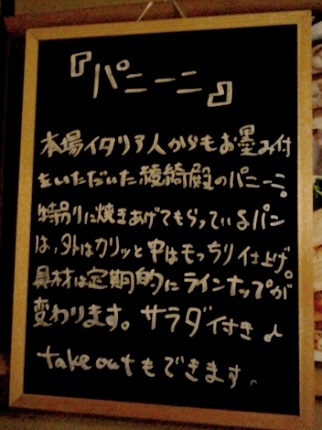 『パニーニ』
本場イタリア人からもお墨み付
をいただいた綾綺殿のパニーニ。
特別に焼きあげてもらっているパン
は、外はカリッと中はもっちり仕上げ。
具材は定期的にラインナップが
変わります。サラダ付き♪
take outもできます。